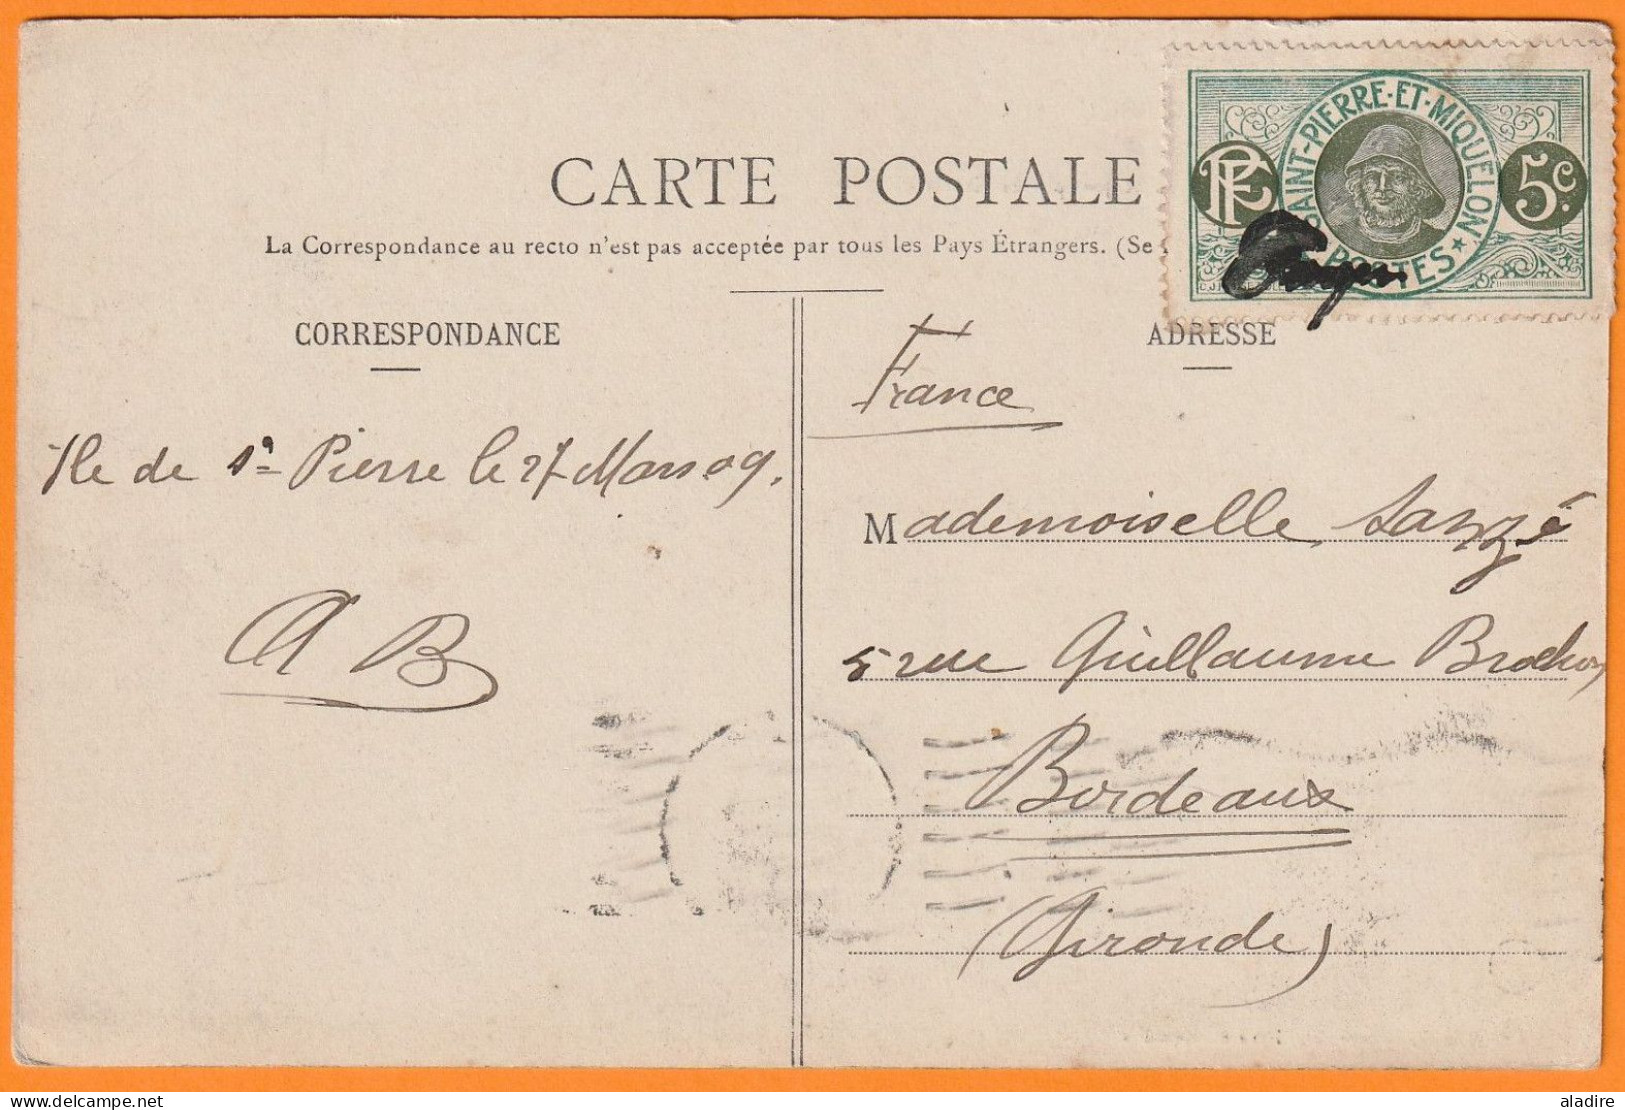 CARTE POSTALE
La Correspondance au recto n'est pas acceptée par tous les Pays Étrangers. (Se
CORRESPONDANCE
ADRESSE
SAINT-PIERRE-ET-MIQUELON
POSTES
RF
5c.
France
Ile de St Pierre le 27 Mars 09.
A B
Mademoiselle
5 rue Guillaume Brochon
Bordeaux
(Gironde)
aladire
delcampe.net